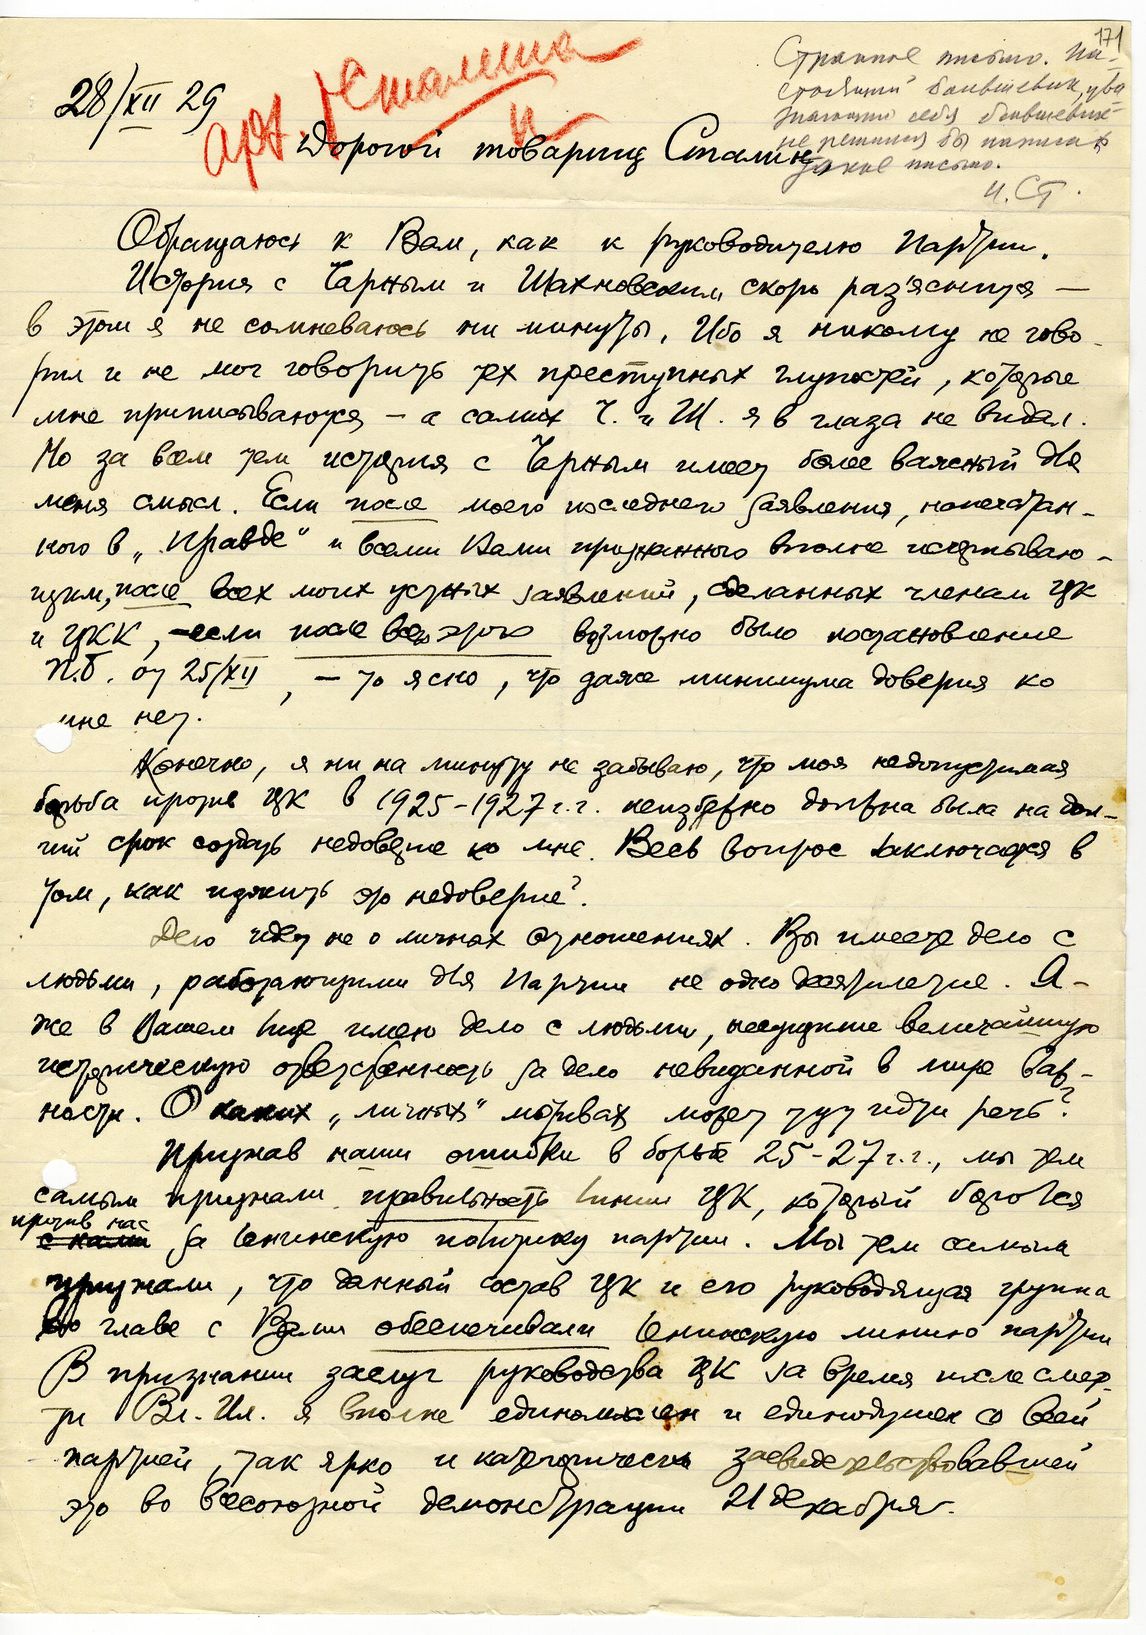 171
Странное письмо. На-
стоящий большевик, ува-
жающий себя большевик
не решился бы написать
такое письмо.
И. Ст.
28/XII 29
арх. Сталина
Дорогой товарищ Сталин
Обращаюсь к Вам, как к руководителю партии.
История с Чарным и Шахновским скоро раз'яснится —
в этом я не сомневаюсь ни минуты. Ибо я никому не гово-
рил и не мог говорить тех преступных глупостей, которые
мне приписываются — а самих Ч. и Ш. я в глаза не видал.
Но за всем тем история с Чарным имеет более важный для
меня смысл. Если после моего последнего заявления, напечатан-
ного в „Правде" и всеми Вами признанного вполне исчерпываю-
щим, после всех моих устных заявлений, сделанных членам ЦК
и ЦКК, — если после всего этого возможно было постановление
П.Б. от 25/XII, — то ясно, что даже минимума доверия ко
мне нет.
Конечно, я ни на минуту не забываю, что моя недопустимая
борьба против ЦК в 1925-1927 г.г. неизбежно должна была на дол-
гий срок создать недоверие ко мне. Весь вопрос заключается в
том, как изжить это недоверие?
Дело идет не о личных отношениях. Вы имеете дело с
людьми, работающими для партии не одно десятилетие. Я-
же в Вашем лице имею дело с людьми, несущими величайшую
историческую ответственность за дело невиданной в мире важ-
ности. О каких „личных" мотивах может тут идти речь?
Признав наши ошибки в борьбе 25-27 г.г., мы тем
самым признали правильность линии ЦК, который боролся
против нас
с нами за ленинскую политику партии. Мы тем самым
признали, что данный состав ЦК и его руководящая группа
во главе с Вами обеспечивали ленинскую линию партии
В признании заслуг руководства ЦК за время после смер-
ти Вл. Ил. я вполне единомыслен и единодушен со всей
партией, так ярко и категорически засвидетельствовавшей
это во всесоюзной демонстрации 21 декабря.